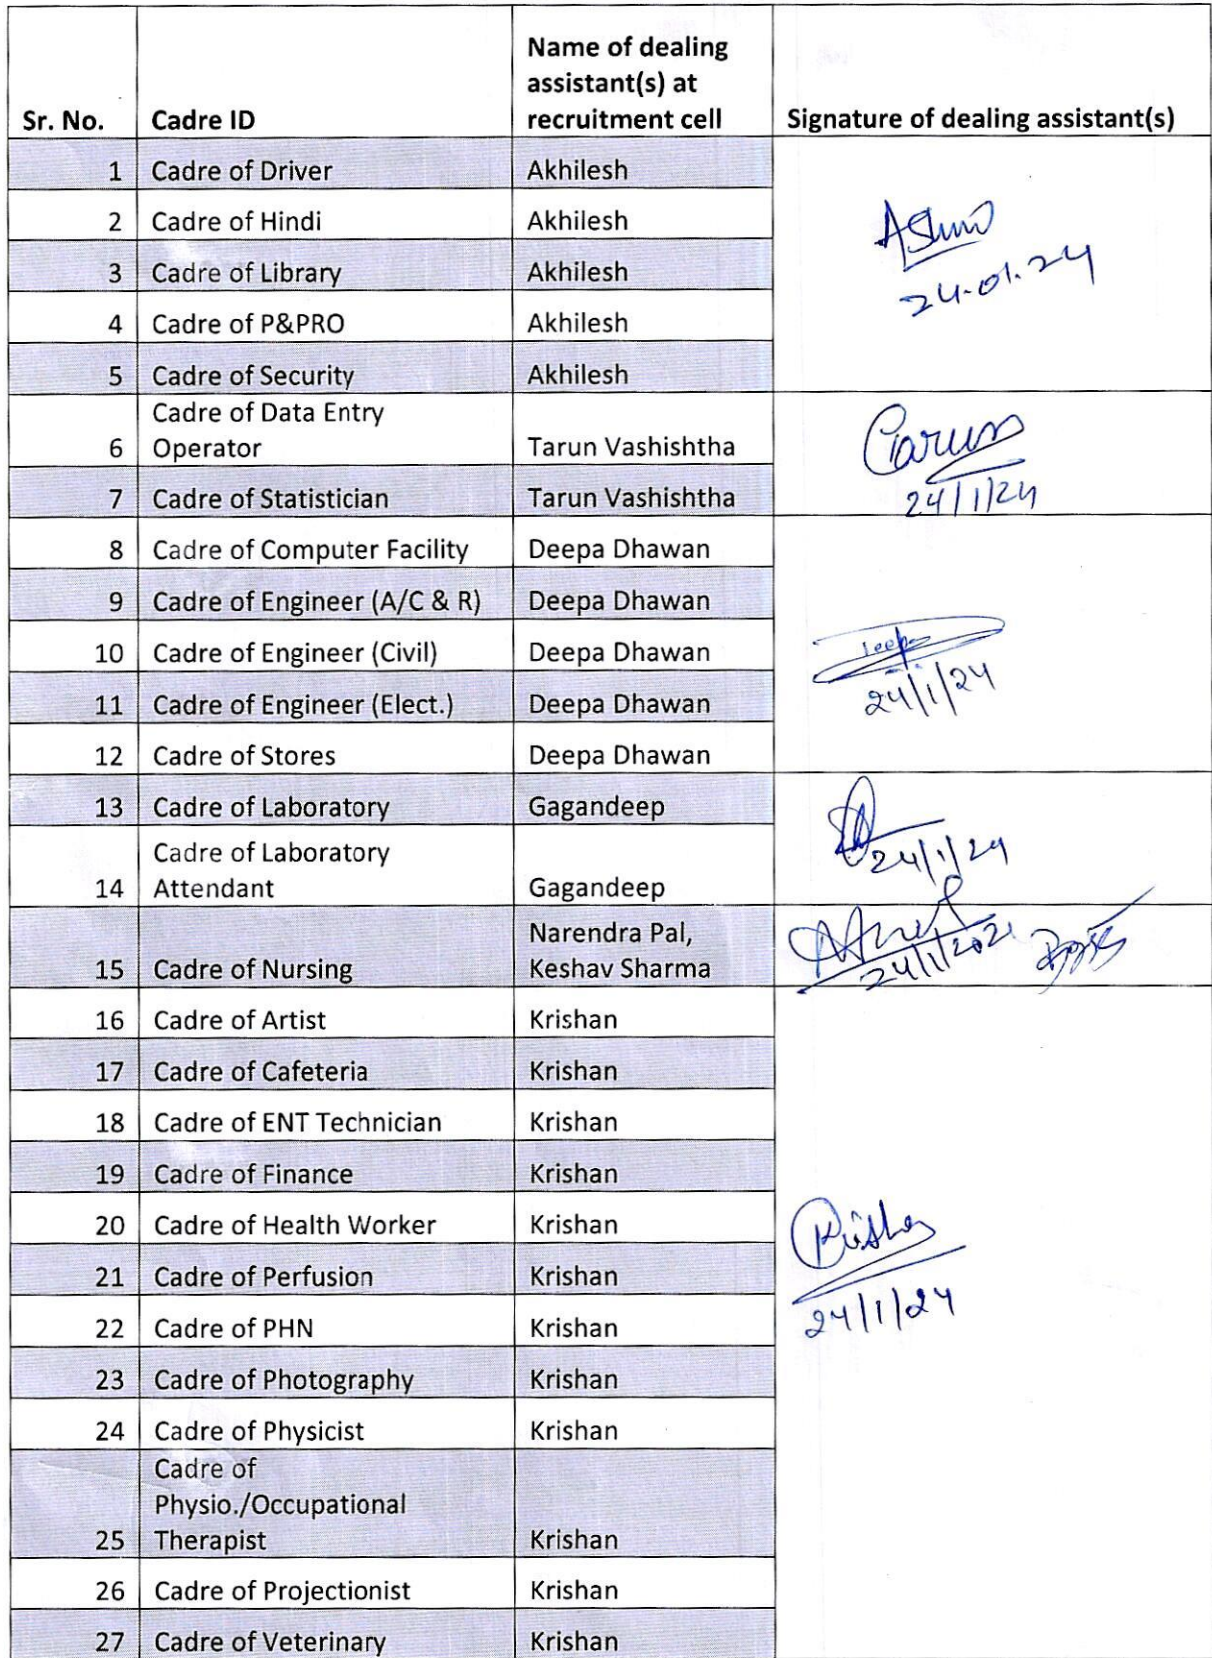 Sr. No. Cadre ID Name of dealing assistant(s) at recruitment cell Signature of dealing assistant(s)
1 Cadre of Driver Akhilesh
2 Cadre of Hindi Akhilesh
24.01.24
3 Cadre of Library Akhilesh
4 Cadre of P&PRO Akhilesh
5 Cadre of Security Akhilesh
Cadre of Data Entry
6 Operator Tarun Vashishtha
7 Cadre of Statistician Tarun Vashishtha 24/1/24
8 Cadre of Computer Facility Deepa Dhawan
9 Cadre of Engineer (A/C & R) Deepa Dhawan
10 Cadre of Engineer (Civil) Deepa Dhawan
11 Cadre of Engineer (Elect.) Deepa Dhawan 24/1/24
12 Cadre of Stores Deepa Dhawan
13 Cadre of Laboratory Gagandeep
Cadre of Laboratory 24/1/24
14 Attendant Gagandeep
Narendra Pal,
15 Cadre of Nursing Keshav Sharma
16 Cadre of Artist Krishan
17 Cadre of Cafeteria Krishan
18 Cadre of ENT Technician Krishan
19 Cadre of Finance Krishan
20 Cadre of Health Worker Krishan
21 Cadre of Perfusion Krishan
22 Cadre of PHN Krishan 24/1/24
23 Cadre of Photography Krishan
24 Cadre of Physicist Krishan
Cadre of
Physio./Occupational
25 Therapist Krishan
26 Cadre of Projectionist Krishan
27 Cadre of Veterinary Krishan